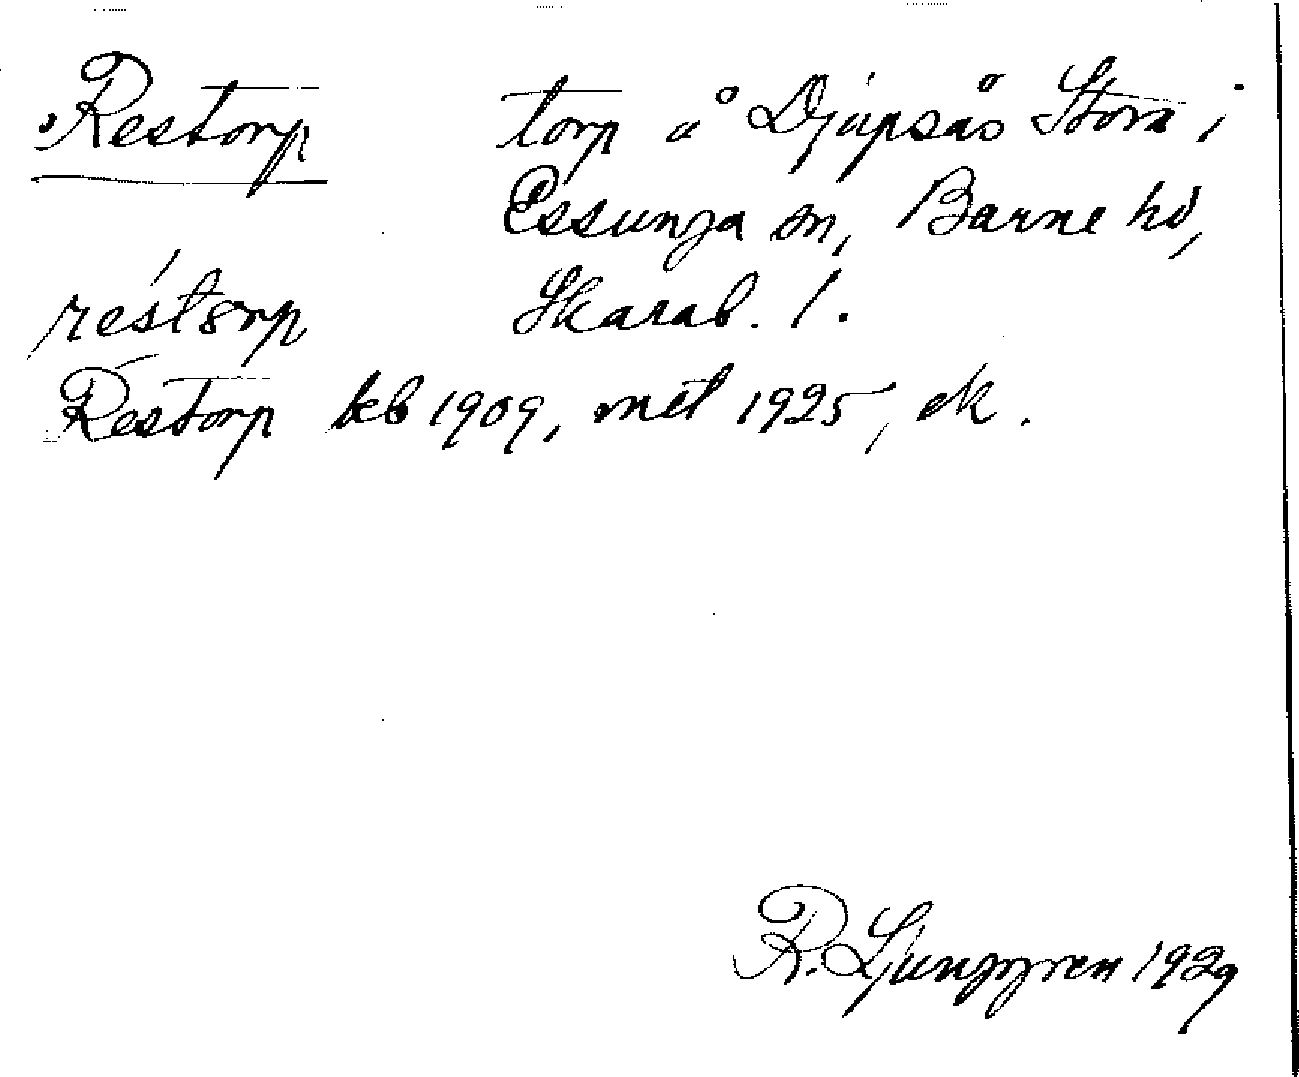 Restorp torp å Djupsås Stora i
Essunga sn, Barne hd,
réstorp Skarab. l.
Restorp kb 1909, mtl 1925, ek.
R. Ljunggren 1929